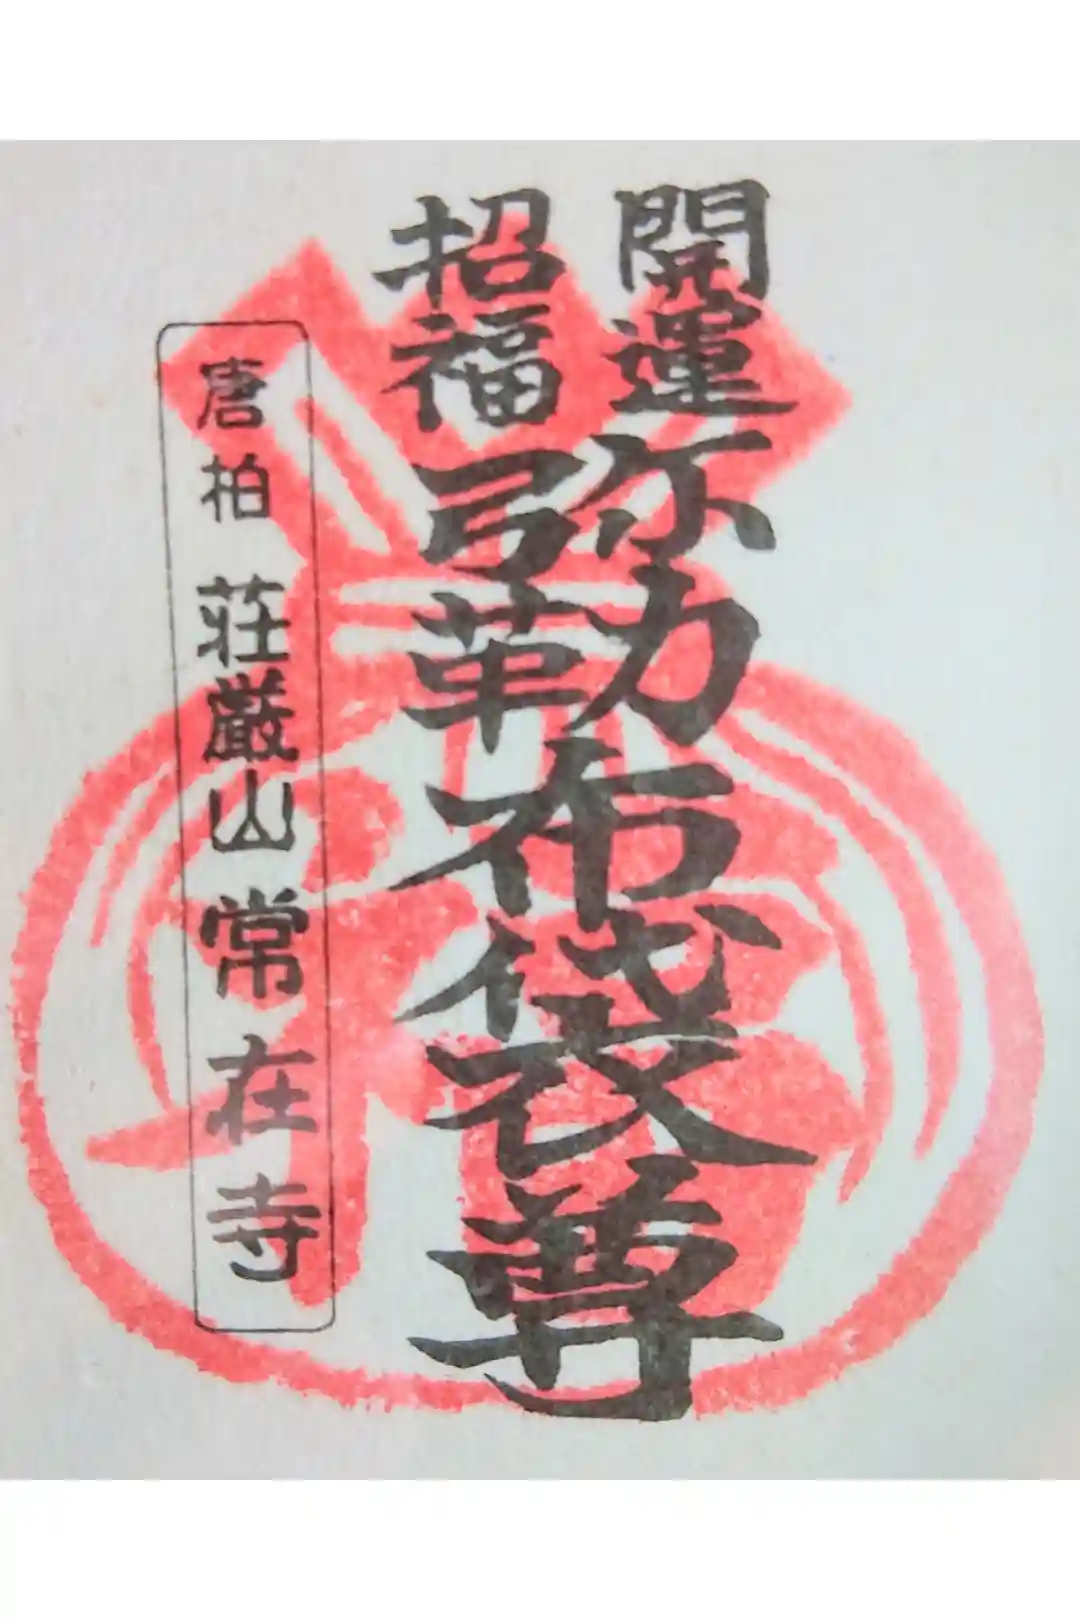 開運
招福
弥勒布袋尊
唐柏 荘厳山 常在寺
福